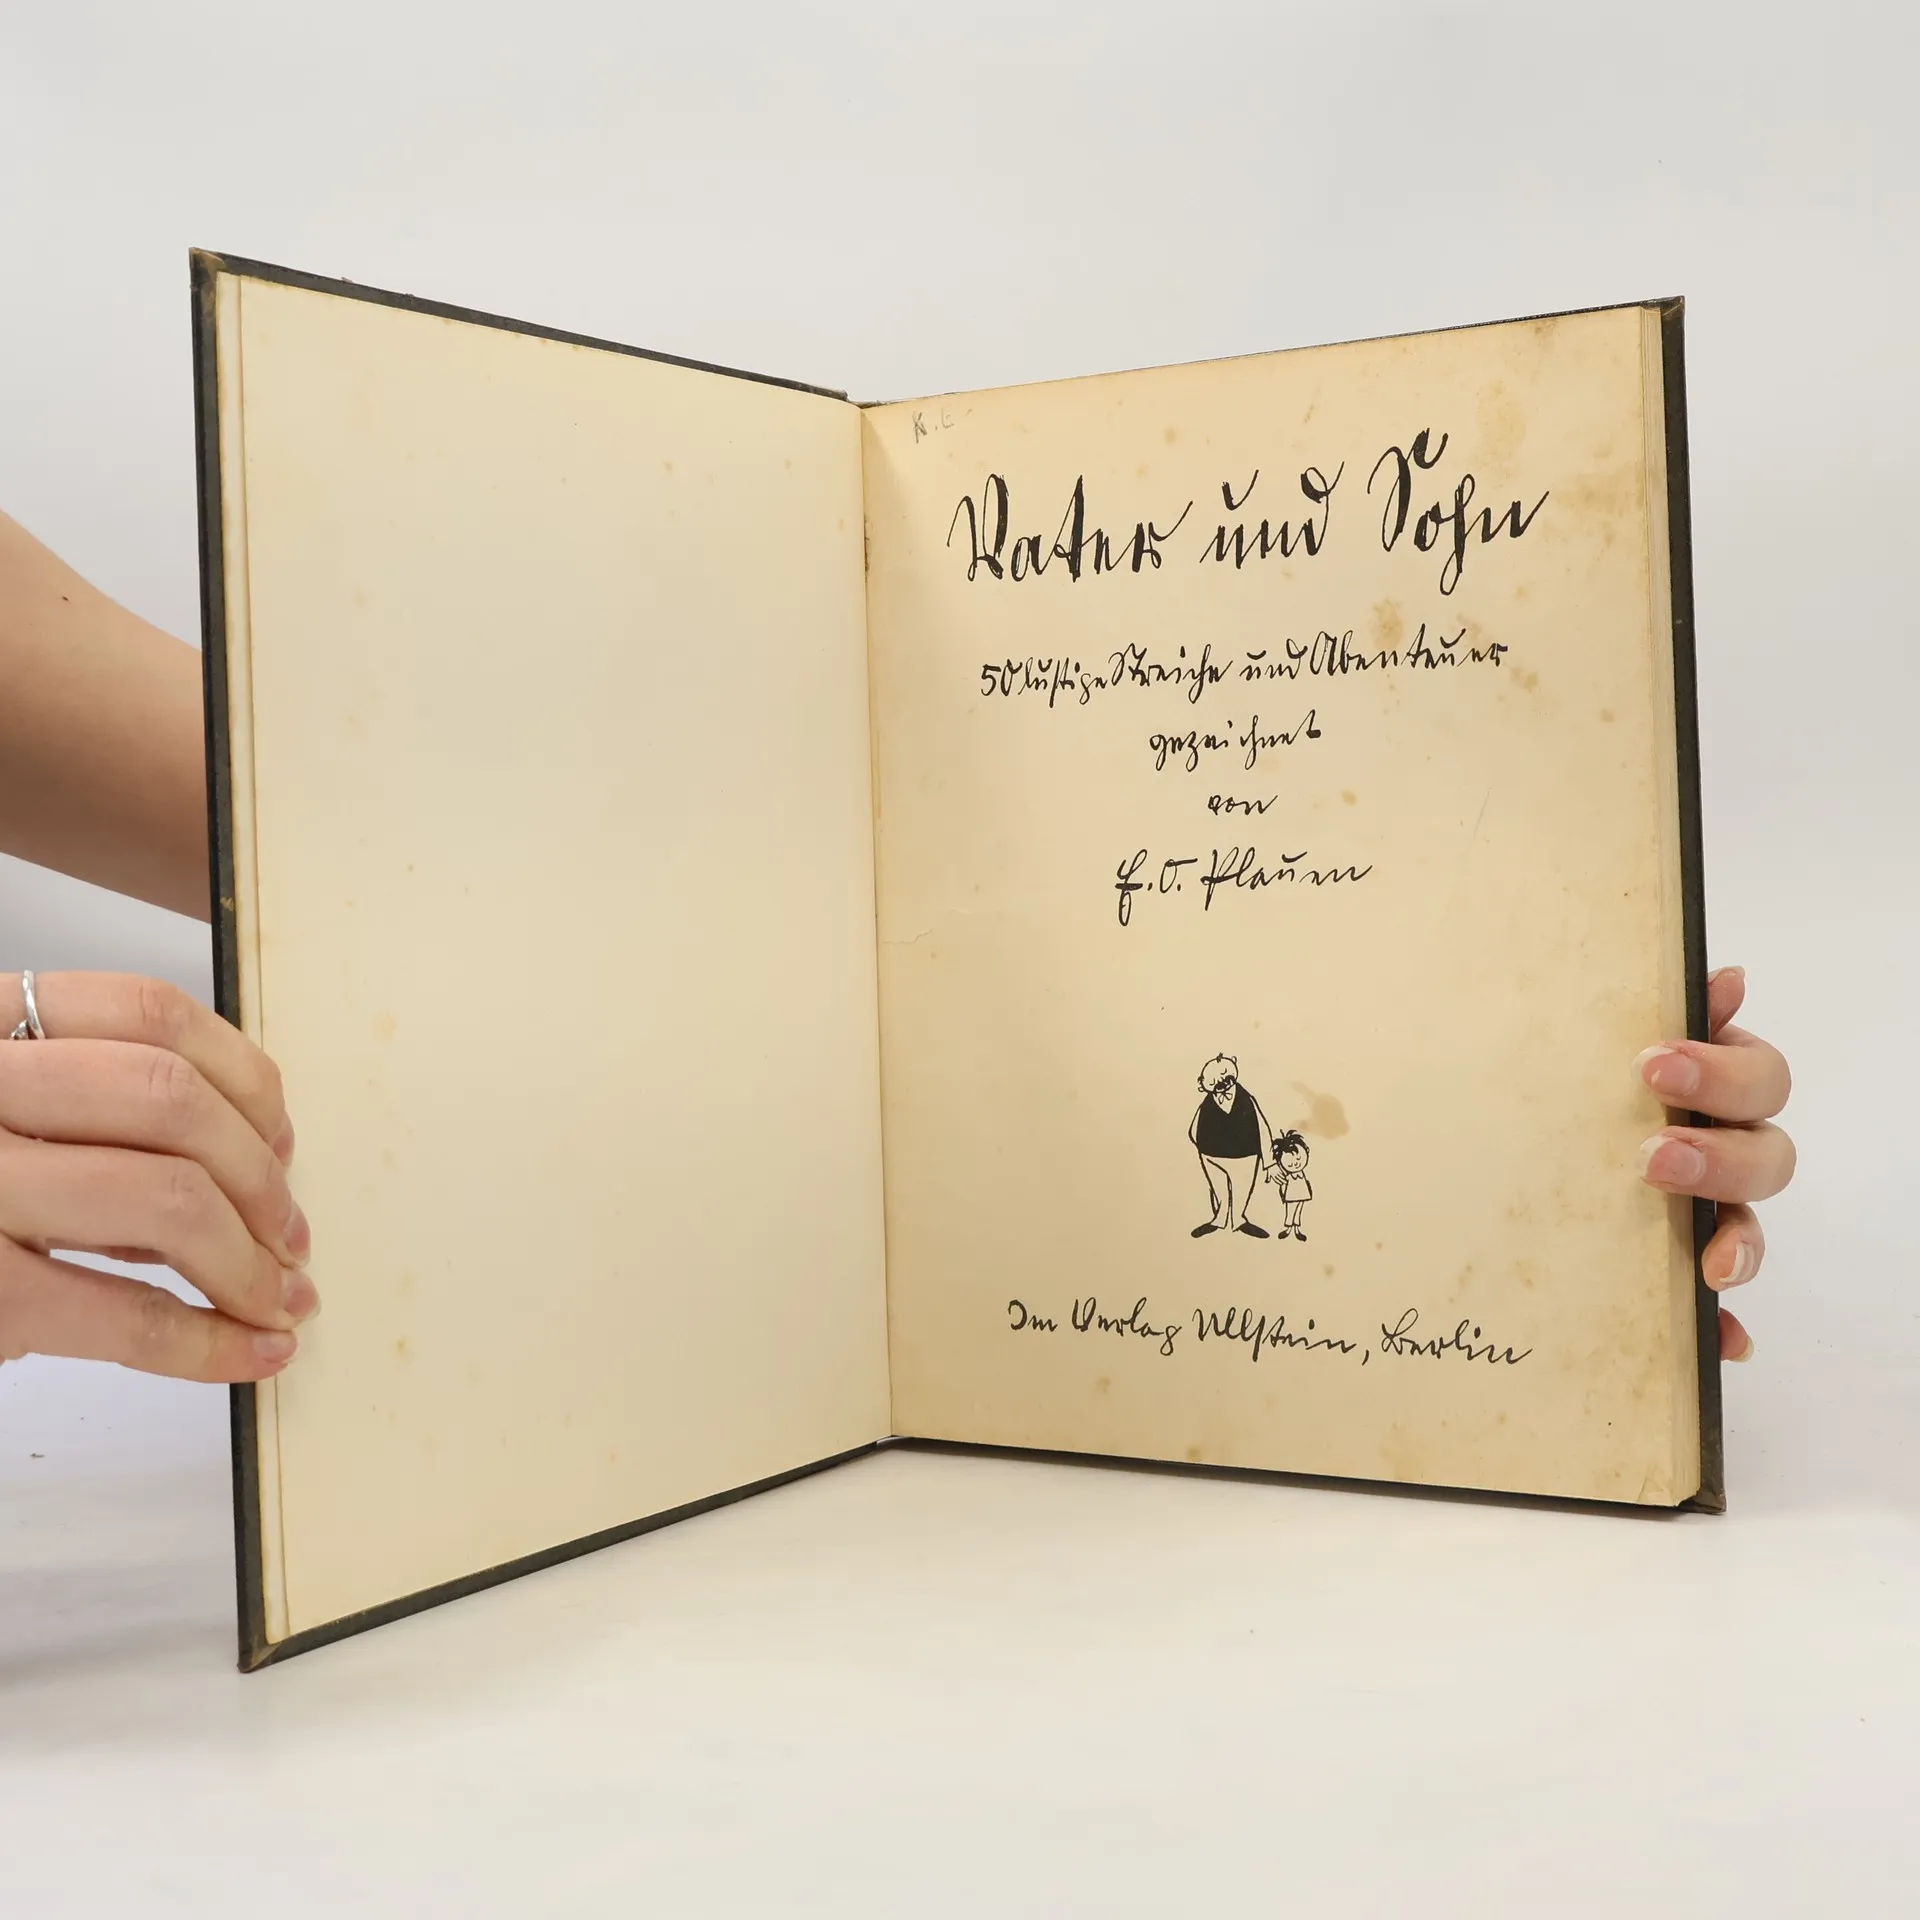 K.E.
Vater und Sohn
50 lustige Streiche und Abenteuer
gezeichnet
von
E. O. Plauen
Im Verlag Ullstein, Berlin